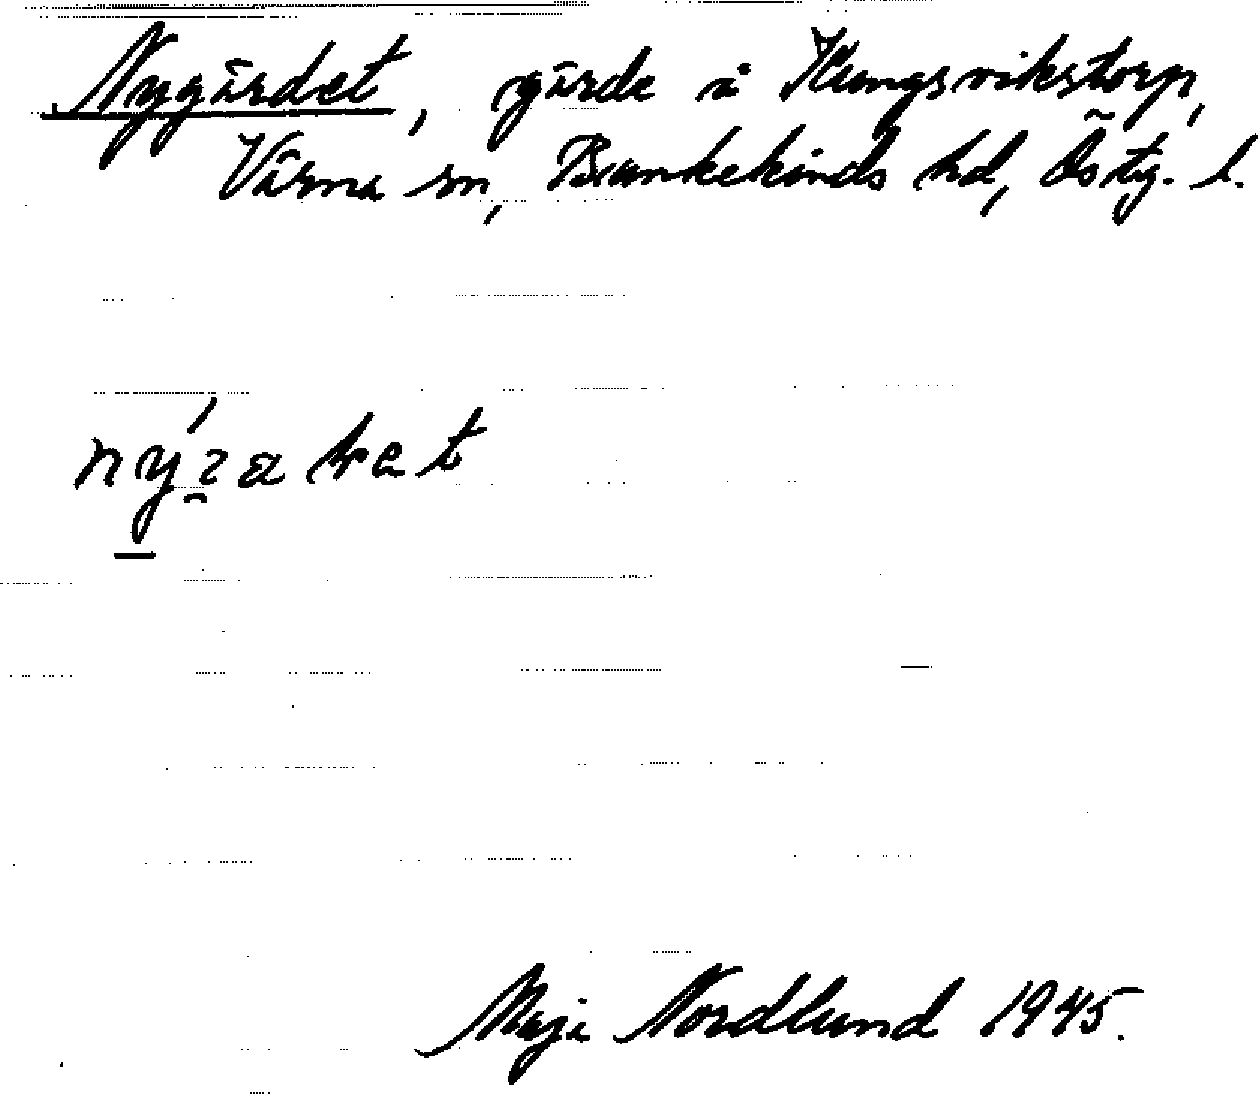 Nygärdet, gärde i Kungsvikstorp,
Värna sn, Bankekinds hd, Östg. l.
Maja Nordlund 1945.